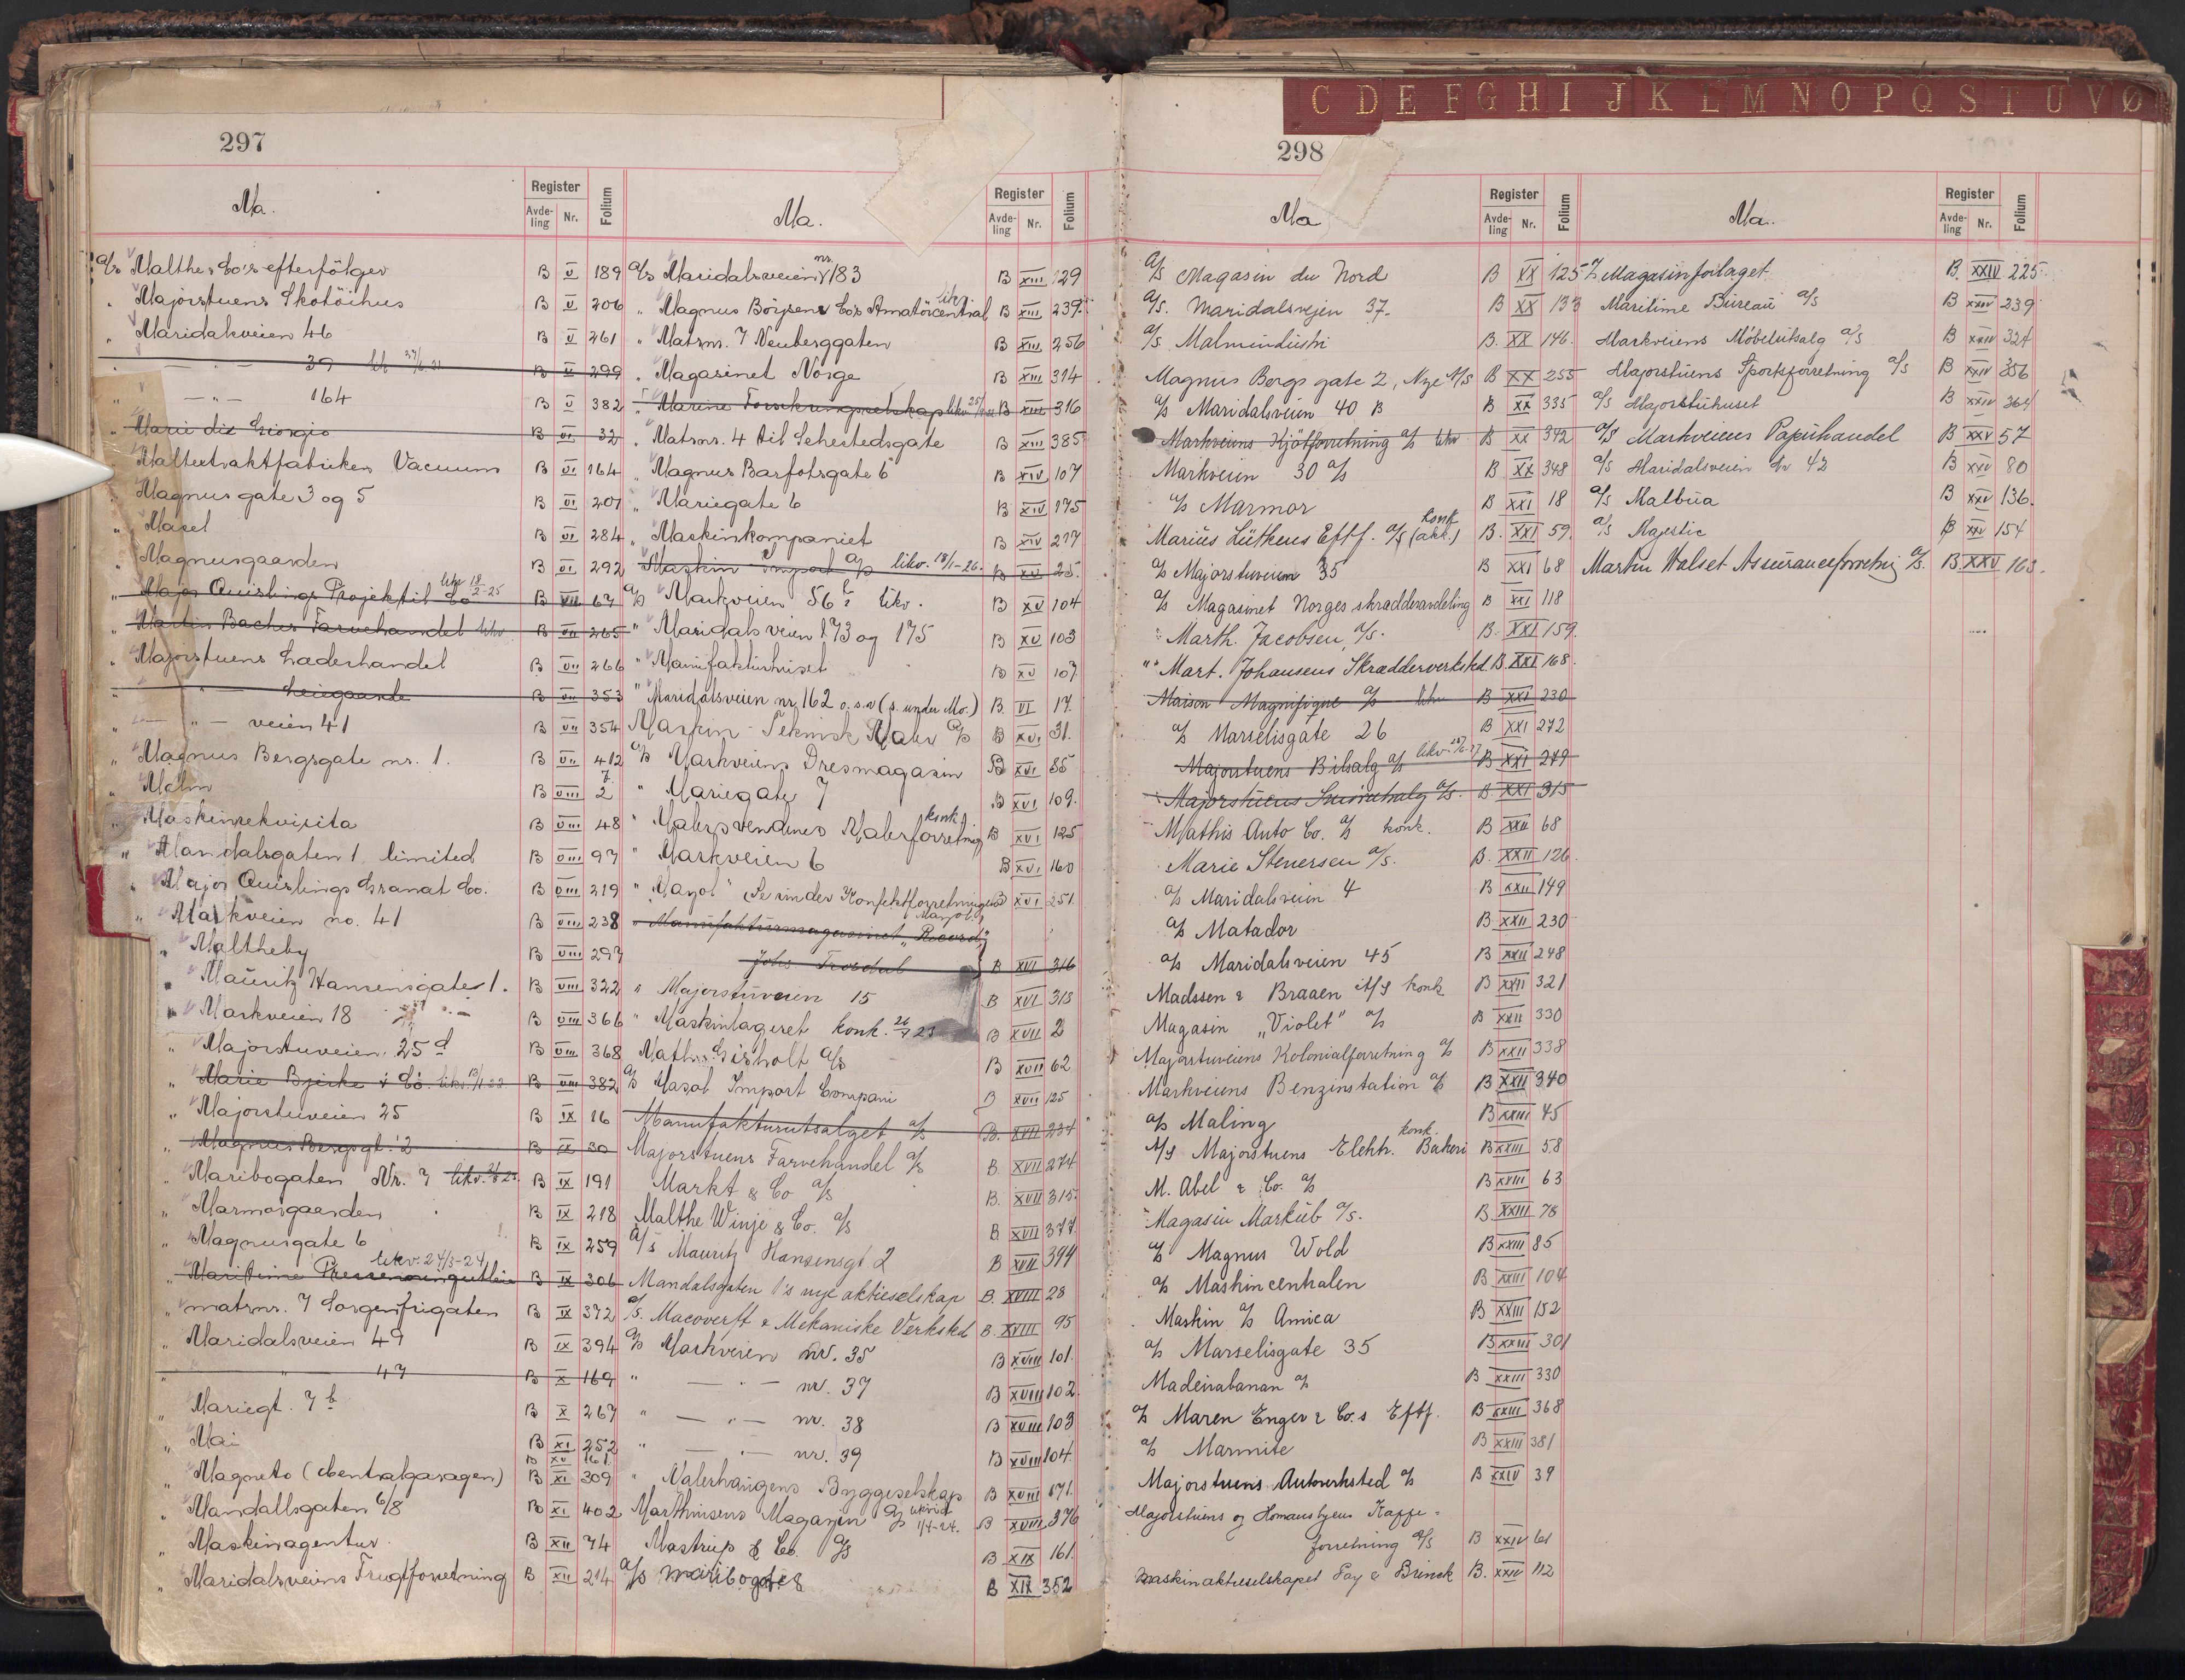 C D E F G H I J K L M N O P Q S T U V Ø
297
Ma.
Register
Avdeling Nr. Folium
A/s Malthe & Co's efterfölger B V 189
" Majorstuens Skotöihus B V 206
" Maridalsveien 46 B V 261
" — " — 39 B V 299
" — " — 164 B V 382
" Marie di Giorgio B VI 32
" Maltextraktfabriken Vacuum B VI 164
" Magnus gate 3 og 5 B VI 207
" Masel B VI 284
" Magnusgaarden B VI 292
" Major Quislings Projektil Co likv 18/2-25 B VII 67
" Martin Baches Farvehandel likv B VII 265
" Majorstuens Laderhandel B VII 266
" — " — Leiegaarde B VII 353
" — " — veien 41 B VII 354
" Magnus Bergsgate nr. 1. B VII 412
" Malm B VIII 2
" Maskinrekvisita B VIII 48
" Mandalsgaten 1 limited B VIII 97
" Major Quislings Granat Co. B VIII 219
" Markveien no. 41 B VIII 238
" Maltheby B VIII 297
" Mauritz Hansensgate 1. B VIII 322
" Markveien 18 B VIII 366
" Majorstuveien 25 d B VIII 368
" Marie Bjerke & Co. likv. B VIII 382
" Majorstuveien 25 B IX 16
" Magnus Bergsgt. 2 B IX 30
" Maribogaten Nr. 7 likv. B IX 191
" Marmorgaarden B IX 218
" Magnusgate 6 B IX 259
" Maritime likv. 24/3-24 B IX 306
" matrnr. 7 Sorgenfrigaten B IX 372
" Maridalsveien 49 B IX 394
" — " — 47 B X 169
" Mariegt. 7 b B X 267
" Mai B XI 252
B XV 161
" Magneto (Centralgaragen) B XI 309
" Mandallsgaten 6/8 B XI 402
" Maskinagentur B XII 74
" Maridalsveiens Frugtforretning B XII 214
Ma.
Register
Avdeling Nr. Folium
A/s Maridalsveien nr. 183 B XIII 129
" Magnus Böysens Co's Amatörcentral likv B XIII 239
" Matrnr. 7 Neuberggaten B XIII 256
" Magasinet Norge B XIII 314
" Marine Forsikringsselskap likv B XIII 316
" Matrnr. 4 til Sehestedsgate B XIII 385
" Magnus Barfotsgate 6 B XIV 107
" Mariegate 6 B XIV 175
" Maskinkompaniet B XIV 217
Maskin Import A/s likv. 18/1-26. B XV 25
A/s Markveien 56 likv. B XV 104
" Maridalsveien 173 og 175 B XV 103
" Manufakturhuset B XV 107
" Maridalsveien nr. 162 o.s.v (s. under Mo.) B VI 17
Maskin-Teknisk A/s B XVI 31.
A/s Markveiens Dresmagasin B XVI 85
" Mariegate 7 B XVI 109.
" Malersvendenes Malerforretning konk. B XVI 125
" Markveien 6 B XVI 160
" "Mayol" B XVI 251
" Manufakturmagasinet "Record"
Johs Trosdal B XVI 316
" Majorstuveien 15 B XVI 313
" Maskinlageret konk. B XVII 2
Mathis Gisholt A/s B XVII 62
A/s Masal Import Compani B XVII 125
Manufakturutsalget A/s B. XVII 234
Majorstuens Farvehandel A/s B. XVII 274
Markt & Co A/s B. XVII 315
Malthe Winje & Co. A/s B XVII 377
A/s Mauritz Hansensgt 2 B XVII 394
Mandalsgaten 1's nye aktieselskap B. XVIII 28
A/s. Macoverft & Mekaniske Verksted B XVIII 95
A/s Markveien nr. 35 B XVIII 101.
" — " — nr. 37 B XVIII 102
" — " — nr. 38 B XVIII 103
" — " — nr. 39 B XVIII 104
" Malerhaugens Byggeselskap B XVIII 171.
Marthinsens Magasin A/s 1/4-24. B XVIII 376
Mastrup & Co. A/s B XIX 161.
A/s Maribogate 8 B XIX 352
298
Ma
Register
Avdeling Nr. Folium
A/s Magasin du Nord B XX 125
A/s. Maridalsveien 37. B XX 133
A/s Malmindustri B. XX 146.
Magnus Bergs gate 2, Nye A/S B XX 255
A/s Maridalsveien 40 B B XX 335
Markveiens Kjötforretning A/s likv B XX 342
Markveien 30 A/s B XX 348
A/s Marmor B XXI 18
Marius Lütkens Eftf. A/s (akk.) konk B. XXI 59.
A/s Majorstuveien 35 B XXI 68
A/s Magasinet Norges skrædderavdeling B XXI 118
" Marth. Jacobsen, A/s. B. XXI 159.
"" Mart. Johansens Skrædderverksted B. XXI 168.
Maison Magnifique A/s likv B XXI 230
A/s Marselisgate 26 B XXI 272
Majorstuens Bilsalg A/s likv. B XXI 279
Majorstuens A/s. B. XXI 315
Mathis Auto Co. A/s konk. B XXII 68
Marie Stenersen A/s. B. XXII 126.
A/s Maridalsveien 4 B XXII 149
A/s Matador B XXII 230
A/s Maridalsveien 45 B XXII 248
Madssen & Braaen A/S konk B XXII 321
Magasin "Violet" A/s B XXII 330
Majorstuveiens Kolonialforretning A/s B XXII 338
Markveiens Benzinstation A/s B XXII 340
A/s Maling B XXIII 45
A/S Majorstuens Elektr. Bakeri konk. B XXIII 58
M. Abel & Co. A/s B XXIII 63
" Magasin Marküb A/s. B. XXIII 78
A/s Magnus Wold B XXIII 85
A/s Maskincentralen B XXIII 104
Maskin A/s Amica B XXIII 152
A/s Marselisgate 35 B XXIII 301
Madeirabanan A/s B XXIII 330
A/s Maren Enger & Co.s Eftf. B XXIII 368
A/s Marmite B XXIII 381
Majorstuens Autoverksted A/s B XXIV 39
Majorstuens og Homansbyens Kaffe-
forretning A/s B XXIV 61
Maskinaktieselskapet Fay & Brinck B. XXIV 112
Ma.
Register
Avdeling Nr. Folium
A/s Magasinforlaget B. XXIV 225
Maritime Bureau A/s B XXIV 239
Markveiens Møbelutsalg A/s B XXIV 324
Majorstuens Sportsforretning A/s B XXIV 356
A/s Majorstuhuset B XXIV 364
A/S Markveiens Papirhandel B XXV 57
A/s Maridalsveien Nr 42 B XXV 80
A/s Malbua B XXV 136.
A/s Majestic B XXV 154
Martin Halset Assuranceforretning A/s. B XXV 163.